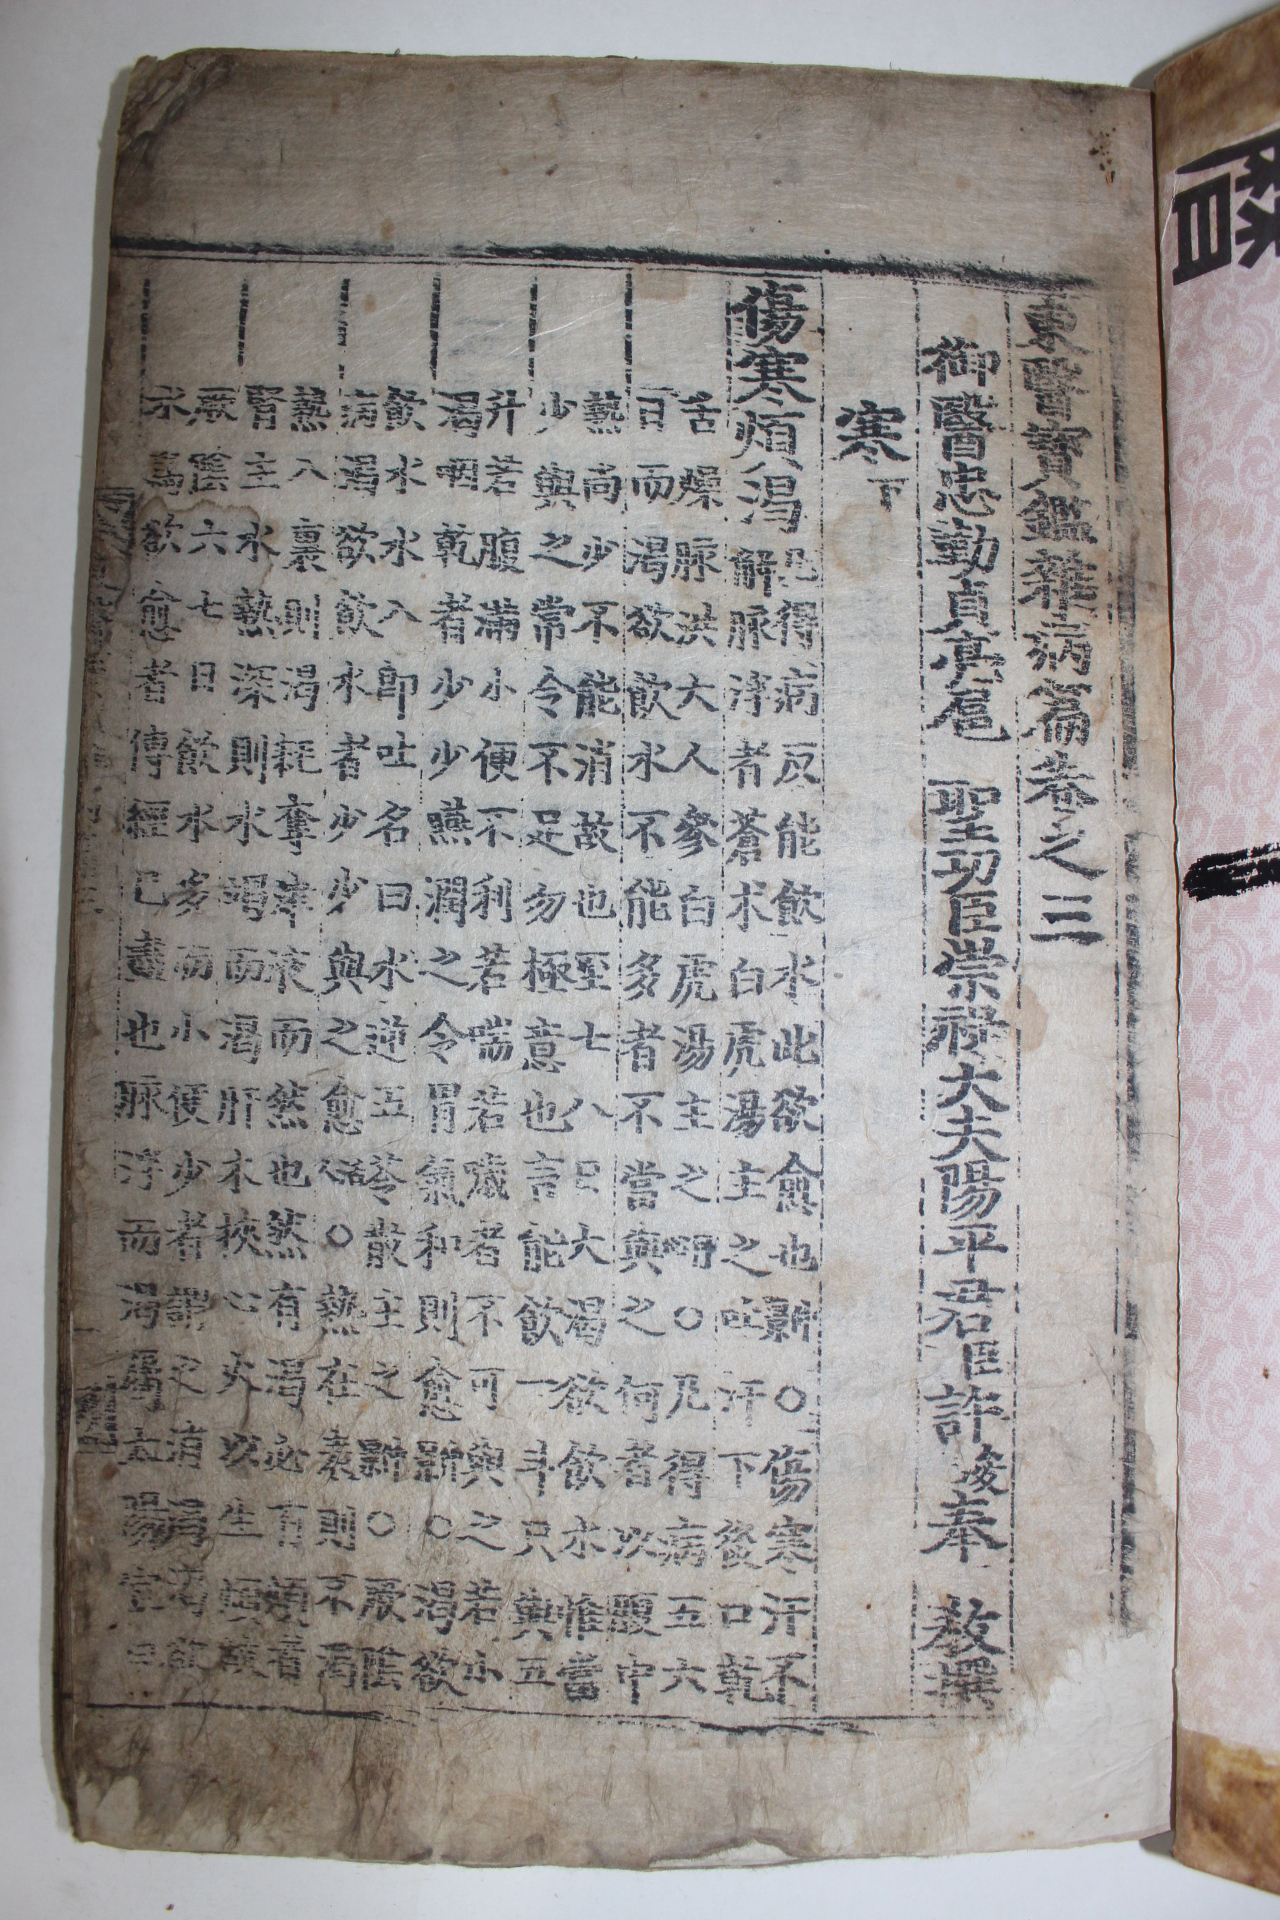 東醫寶鑑雜病篇卷之三
御醫忠勤貞亮扈 聖功臣崇祿大夫陽平君臣許浚奉 敎撰
寒下
傷寒煩渴
凡得病反能飮水此欲愈也新○傷寒汗不
解脉浮者蒼朮白虎湯主之吐汗下後口乾
舌燥脉洪大人參白虎湯主之明○凡得病五六
日而渴欲飮水不能多者不當與之何者以腹中
熱尚少不能消故也至七八日大渴欲飮水惟當
少與之常令不足勿極意也言能飮一斗只與五
升若腹滿小便不利若喘若噦者不可與之若小
渴咽乾者少少嚥潤之令胃氣和則愈新○渴欲
飮水水入卽吐名曰水逆五苓散主之新○厥陰
病渴欲飮水者少少與之愈活人○熱在表則不渴
熱入裏則渴耗奪津液而然也然有渴必有煩者
腎主水熱深則水竭而渴肝木挾心火以生煩故
厥陰六七日飮水多而小便少者謂之消渴渴欲
求爲欲愈者傳經已盡也脉浮而渴屬太陽